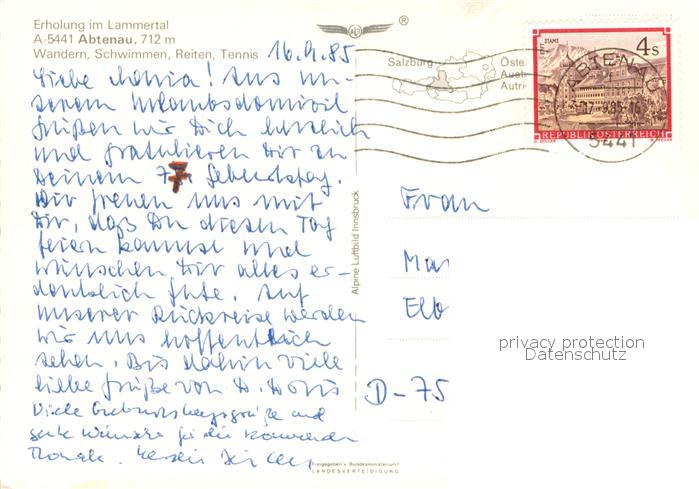 Erholung im Lammertal
A-5441 Abtenau, 712 m
Wandern, Schwimmen, Reiten, Tennis
®
16.9.85
Liebe Maria! Aus un-
serem Urlaubsdomizil
grüßen wir Dich herzlich
und gratulieren Dir zu
Deinem 77. Geburtstag.
Wir freuen uns mit
Dir, daß Du diesen Tag
feiern kannst und
wünschen Dir alles er-
denklich Gute. Auf
unserer Rückreise werden
wir uns hoffentlich
sehen. Bis dahin viele
liebe Grüße von D. Doris
Viele Geburtstagsgrüße und
gute Wünsche für die kommenden
Salzburg
Öste
Aust
Autri
ABTENAU
5441
STIFT STAMS
4 S
REPUBLIK ÖSTERREICH
Alpine Luftbild Innsbruck
Frau
Mar
Elb
D-75
privacy protection
Datenschutz
Freigegeben v. Bundesministerium f.
LANDESVERTEIDIGUNG